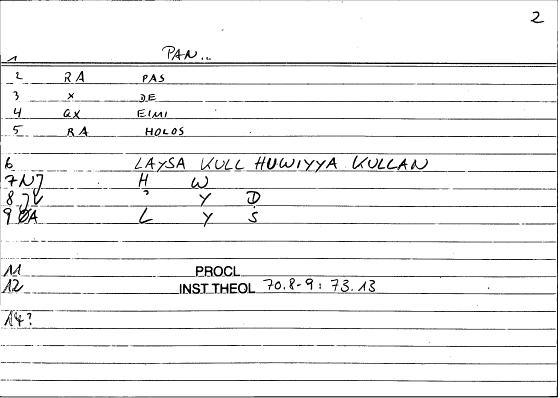 2
1 PAN...
2 RA PAS
3 X DE
4 GX EIMI
5 RA HOLOS
6 LAYSA KULL HUWIYYA KULLAN
7 NJ H W
8 JV ? Y D
9 ØA L Y S
11 PROCL
12 INST THEOL 70.8-9: 73.13
14?